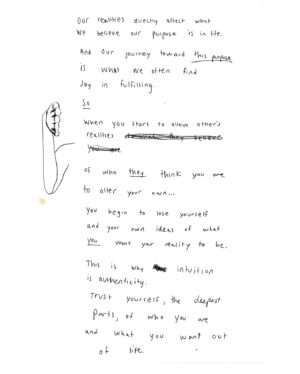 Our realities directly affect what
we believe our purpose is in life.
And our journey toward this purpose
is what we often find
Joy in fulfilling.
So
When you start to allow other's
realities
of who they think you are
to alter your own...
you begin to lose yourself
and your own ideas of what
you want your reality to be.
This is why intuition
is authenticity.
Trust yourself, the deepest
parts, of who you are
and what you want out
of life.